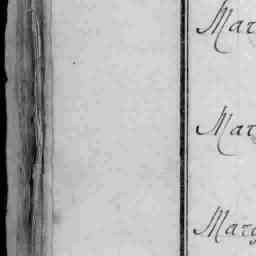 Mar
Mar
Marg